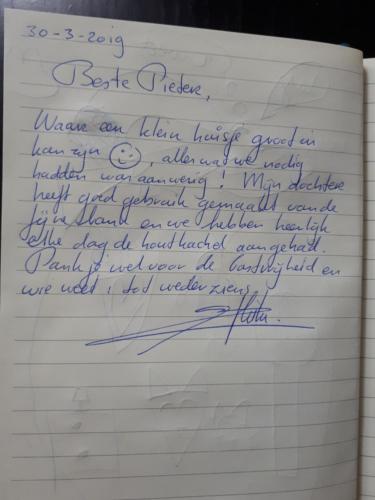 30-3-2019
Beste Pieter,
Waar een klein huisje groot in
kan zijn ☺, alles wat we nodig
hadden was aanwezig! Mijn dochter
heeft goed gebruik gemaakt van de
fijne bank en we hebben heerlijk
elke dag de houtkachel aangehad.
Dank je wel voor de gastvrijheid en
wie weet, tot weder ziens